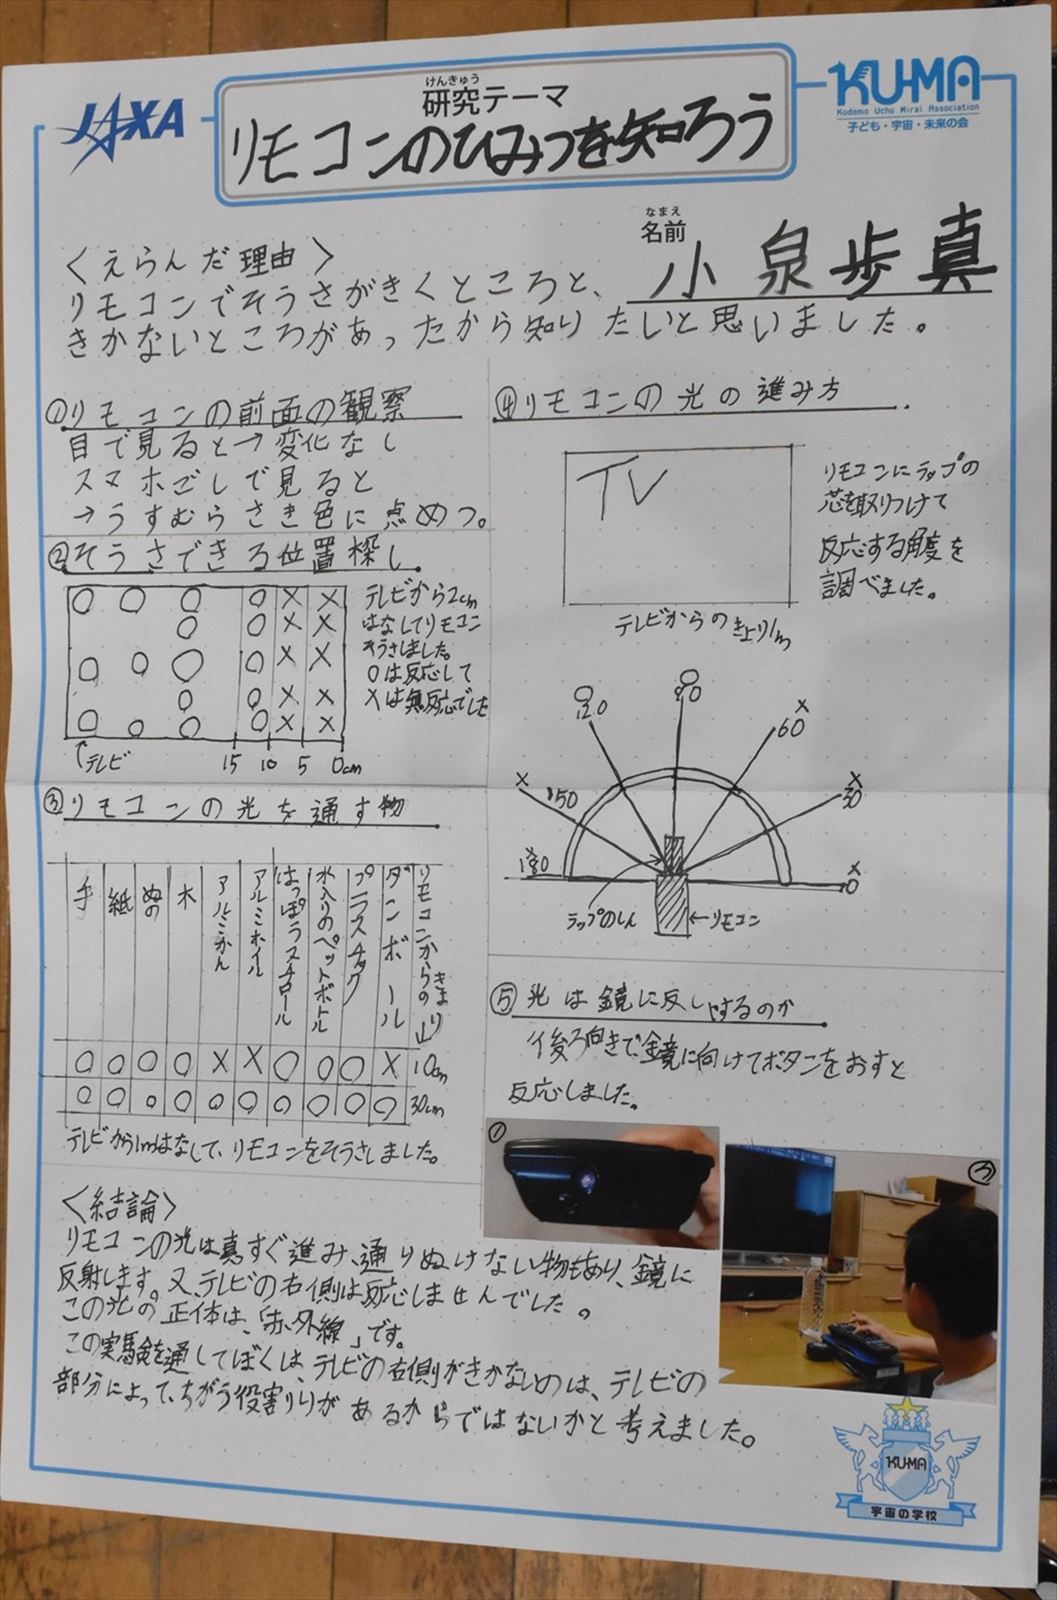 JAXA
けんきゅう
研究テーマ
リモコンのひみつを知ろう
KU-MA
Kodomo Uchu Mirai Association
子ども・宇宙・未来の会
なまえ
名前
小泉歩真
〈えらんだ理由〉
リモコンでそうさがきくところと、
きかないところがあったから知りたいと思いました。
①リモコンの前面の観察
目で見ると→変化なし
スマホごしで見ると
→うすむらさき色に点めつ。
②そうさできる位置探し
○ ○ ○ ○ × ×
○ ○ × ×
○ ○ ○ ○ × ×
○ ○ × ×
○ ○ ○ ○ × ×
↑テレビ 15 10 5 0cm
テレビから2cm
はなしてリモコン
そうさしました。
○は反応して
×は無反応でした
③リモコンの光を通す物
手
紙
ぬの
木
アルミかん
アルミホイル
はっぽうスチロール
水入りのペットボトル
プラスチック
ダンボール
リモコンからのきょり
○ ○ ○ ○ × × ○ ○ ○ × 10cm
○ ○ ○ ○ ○ ○ ○ ○ ○ ○ 30cm
テレビから1mはなして、リモコンをそうさしました。
④リモコンの光の進み方
TV
テレビからのきょり1m
リモコンにラップの
芯を取りつけて
反応する角度を
調べました。
○ 120
○ 90
× 60
× 150
× 30
× 180
× 0
ラップのしん
←リモコン
⑤光は鏡に反しゃするのか
後ろ向きで鏡に向けてボタンをおすと
反応しました。
①
③
〈結論〉
リモコンの光は真すぐ進み、通りぬけない物もあり、鏡に
反射します。又、テレビの右側は反応しませんでした。
この光の正体は、「赤外線」です。
この実験を通してぼくは、テレビの右側がきかないのは、テレビの
部分によって、ちがう役割りがあるからではないかと考えました。
KU-MA
宇宙の学校